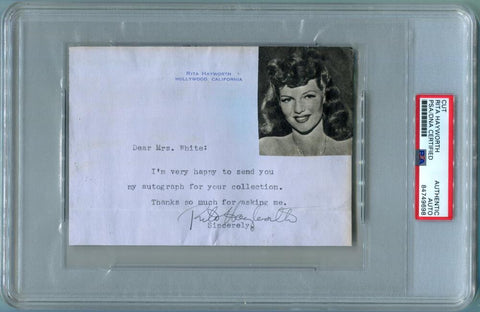 RITA HAYWORTH
HOLLYWOOD, CALIFORNIA
Dear Mrs. White:
I'm very happy to send you
my autograph for your collection.
Thanks so much for asking me.
Rita Hayworth
Sincerely,
CUT
RITA HAYWORTH
PSA/DNA CERTIFIED
AUTHENTIC
AUTO
84749898
PSA